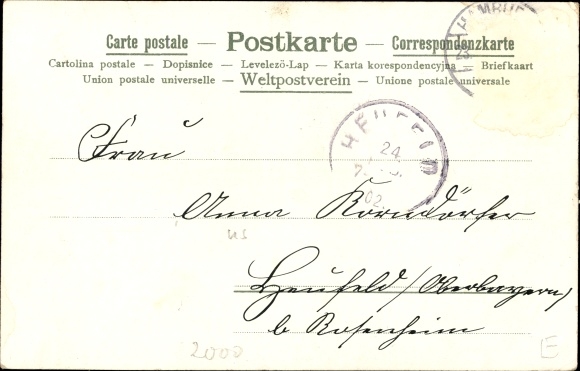 Carte postale — Postkarte — Correspondenzkarte
Cartolina postale — Dopisnice — Levelező-Lap — Karta korespondencyjna — Briefkaart
Union postale universelle — Weltpostverein — Unione postale universale
HEUFELD
24
7
02
Frau
Anna Korndörfer
Heufeld (Oberbayern)
b Rosenheim
2000
E